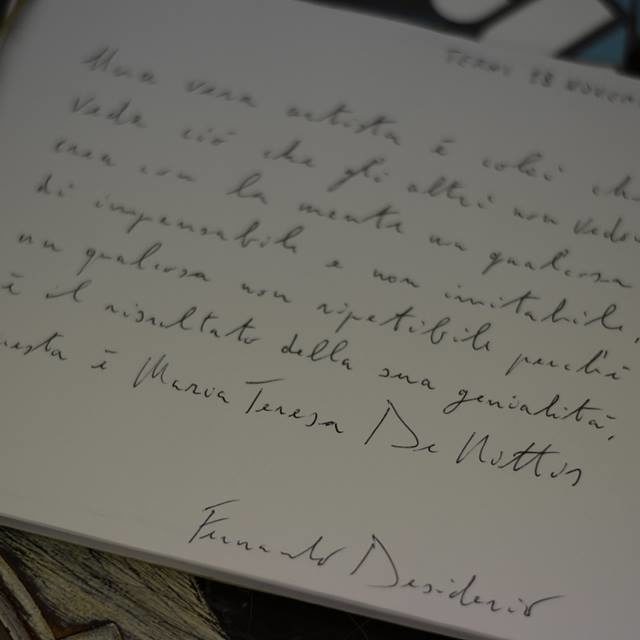 TERNI 28 NOVEM
Una vera artista è colei che
vede ciò che gli altri non vedon
crea con la mente un qualcosa
di impensabile e non imitabile,
un qualcosa non ripetibile perchè
è il risultato della sua genialità,
uesta è Maria Teresa De Nottis
Fernando Desiderio